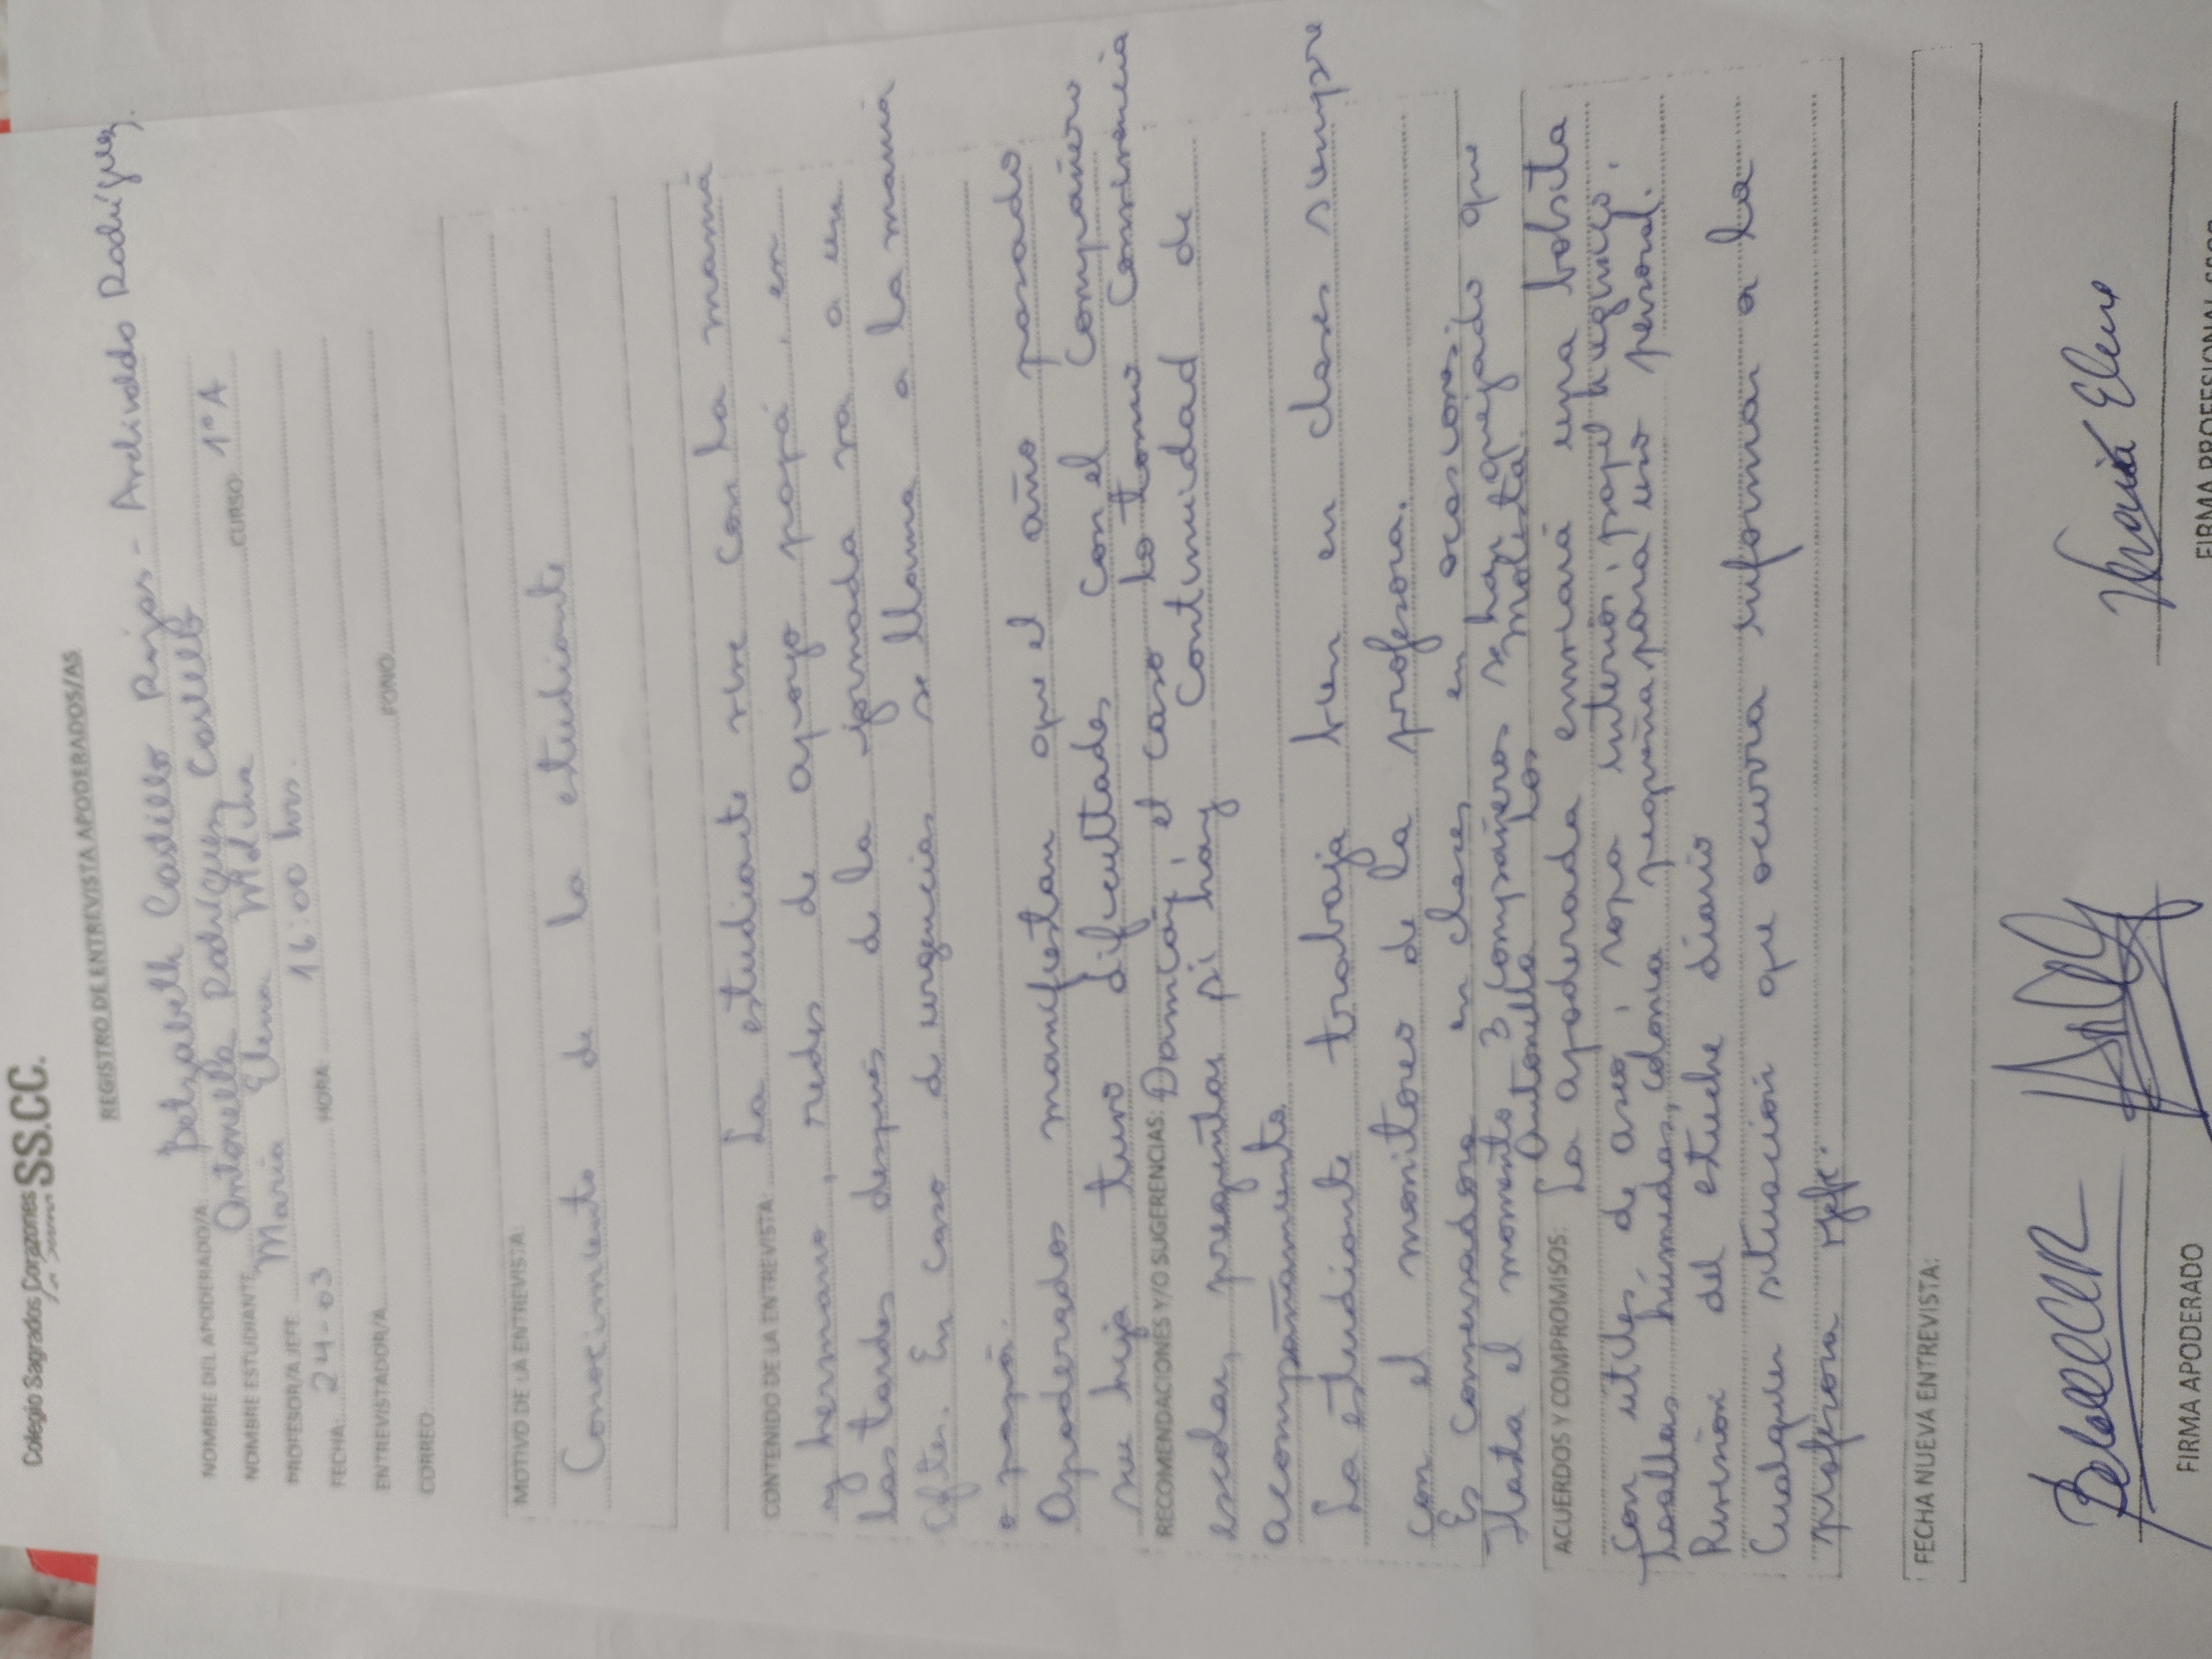 Colegio Sagrados Corazones SS.CC.
REGISTRO DE ENTREVISTA APODERADOS/AS
NOMBRE DEL APODERADO/A: Betzabeth Castillo Rojas - Ardivaldo Rodríguez.
NOMBRE ESTUDIANTE Antonella Rodríguez Castillo CURSO: 1°A
PROFESOR/A JEFE María Elena
FECHA: 24-03 HORA: 16:00 hrs.
ENTREVISTADOR/A FONO
CORREO
MOTIVO DE LA ENTREVISTA:
Conocimiento de la estudiante
CONTENIDO DE LA ENTREVISTA La estudiante vive con la mamá
y hermano, redes de apoyo papá, en
las tardes después de la jornada va a un
After. En caso de urgencias se llama a la mamá
o papá.
Apoderados manifiestan que el año pasado
su hija tuvo dificultades con el compañero
RECOMENDACIONES Y/O SUGERENCIAS: Damián, el caso lo tomó Convivencia
escolar, preguntar si hay continuidad de
acompañamiento
La estudiante trabaja bien en clases siempre
con el monitoreo de la profesora.
Es conversadora en clases en ocasiones.
Hasta el momento 3 compañeros se han quejado que
Antonella los molesta.
ACUERDOS Y COMPROMISOS: La apoderada enviará una bolsita
con útiles de aseo, ropa interior, papel higiénico,
toallas húmedas, colonia pequeña para uso personal.
Revisión del estuche diario
Cualquier situación que ocurra informar a la
profesora jefe.
FECHA NUEVA ENTREVISTA:
María Elena
FIRMA APODERADO
FIRMA PROFESIONAL